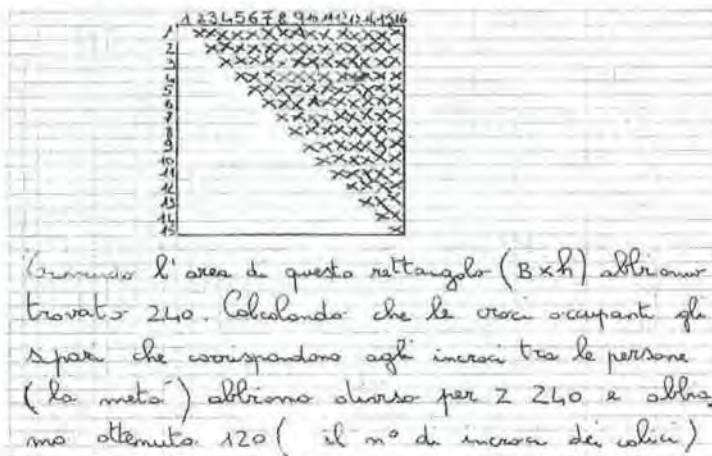 1 2 3 4 5 6 7 8 9 10 11 12 13 14 15 16
1
2
3
4
5
6
7
8
9
10
11
12
13
14
15
l'area di questo rettangolo (B x h) abbiamo
trovato 240. Calcolando che le croci occupanti gli
spazi che corrispondono agli incroci tra le persone
(la metà) abbiamo diviso per 2 240 e abbia
mo ottenuto 120 ( il n° di incroci dei calici)